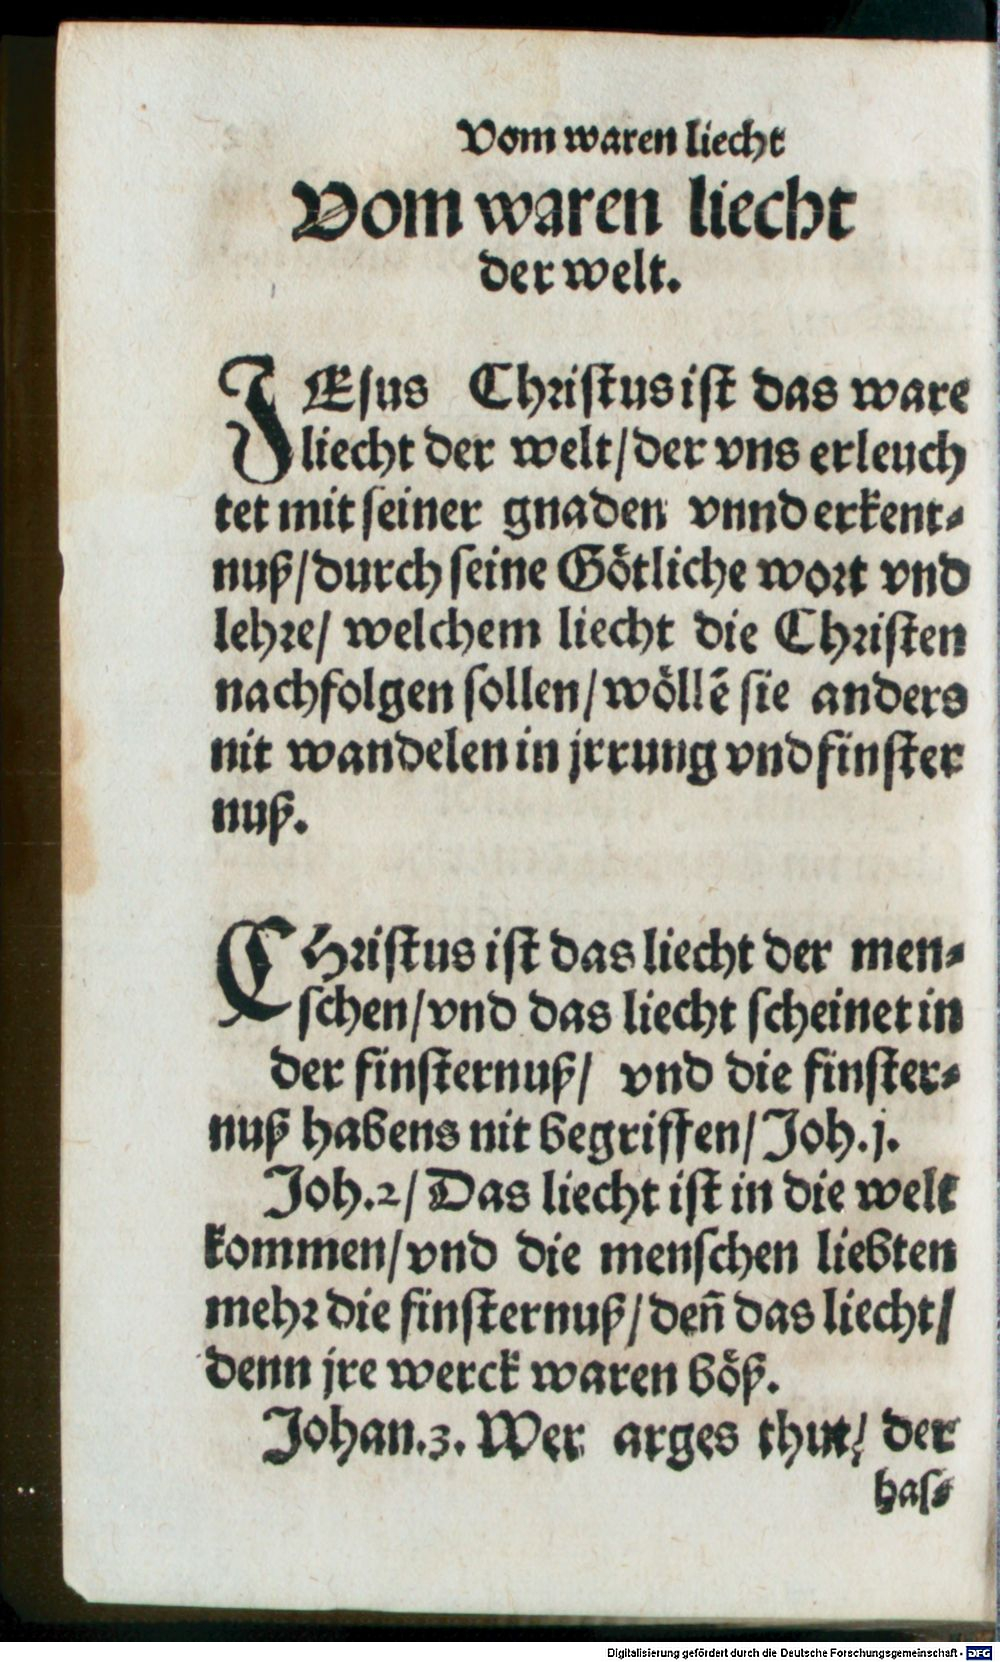 Vom waren liecht
Vom waren liecht
der welt.
JEsus Christus ist das ware
liecht der welt/der vns erleuch
tet mit seiner gnaden vnnd erkent⸗
nuß/durch seine Götliche wort vnd
lehre/ welchem liecht die Christen
nachfolgen sollen/wöllē sie anders
nit wandelen in jrrung vnd finster
nuß.
CHristus ist das liecht der men⸗
schen/vnd das liecht scheinet in
der finsternuß/ vnd die finster⸗
nuß habens nit begriffen/Joh.j.
Joh.2/Das liecht ist in die welt
kommen/vnd die menschen liebten
mehr die finsternuß/deñ das liecht/
denn jre werck waren böß.
Johan.3. Wer arges thut/ der
has⸗
Digitalisierung gefördert durch die Deutsche Forschungsgemeinschaft - DFG